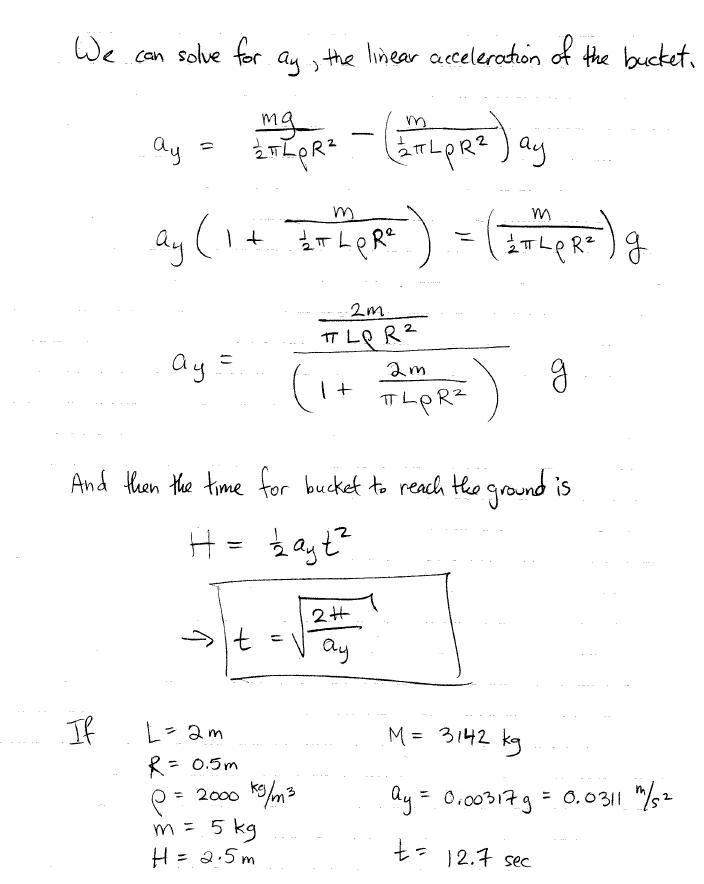 We can solve for ay, the linear acceleration of the bucket.
ay = mg / (½πLρR²) − (m / (½πLρR²)) ay
ay (1 + m / (½πLρR²)) = (m / (½πLρR²)) g
ay = (2m / (πLρR²)) / (1 + 2m / (πLρR²)) g
And then the time for bucket to reach the ground is
H = ½ ay t²
→ t = √(2H / ay)
If L = 2m M = 3142 kg
R = 0.5m
ρ = 2000 kg/m³ ay = 0.00317g = 0.0311 m/s²
m = 5 kg
H = 2.5m t = 12.7 sec